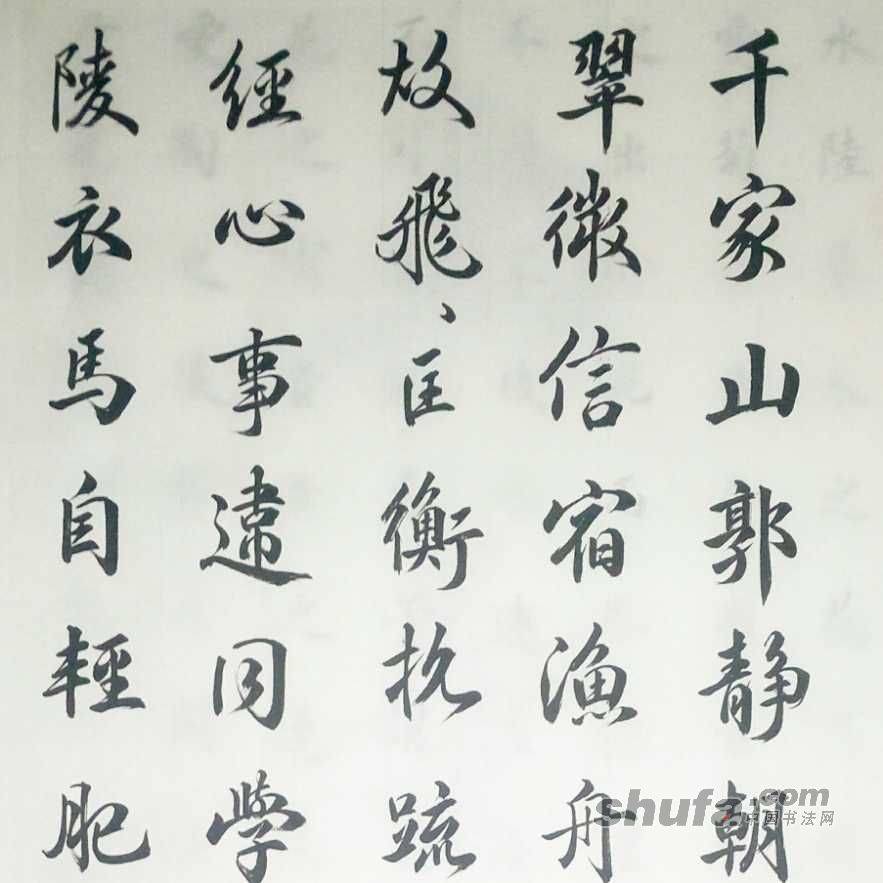 千家山郭静朝
翠微信宿漁舟
故飛〻匡衡抗䟽
經心事違同學
陵衣馬自輕肥
shufa.com
中国书法网